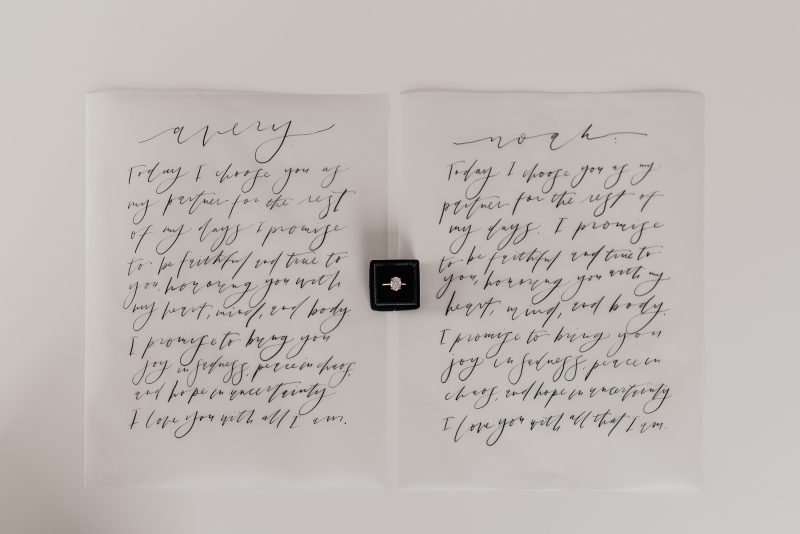 avery.
Today I choose you as
my partner for the rest
of my days. I promise
to be faithful and true to
you, honoring you with
my heart, mind, and body
I promise to bring you
joy in sadness, peace in chaos,
and hope in uncertainty.
I love you with all I am.
noah.
Today I choose you as my
partner for the rest of
my days. I promise
to be faithful and true to
you, honoring you with my
heart, mind, and body.
I promise to bring you
joy in sadness, peace in
chaos, and hope in uncertainty
I love you with all that I am.